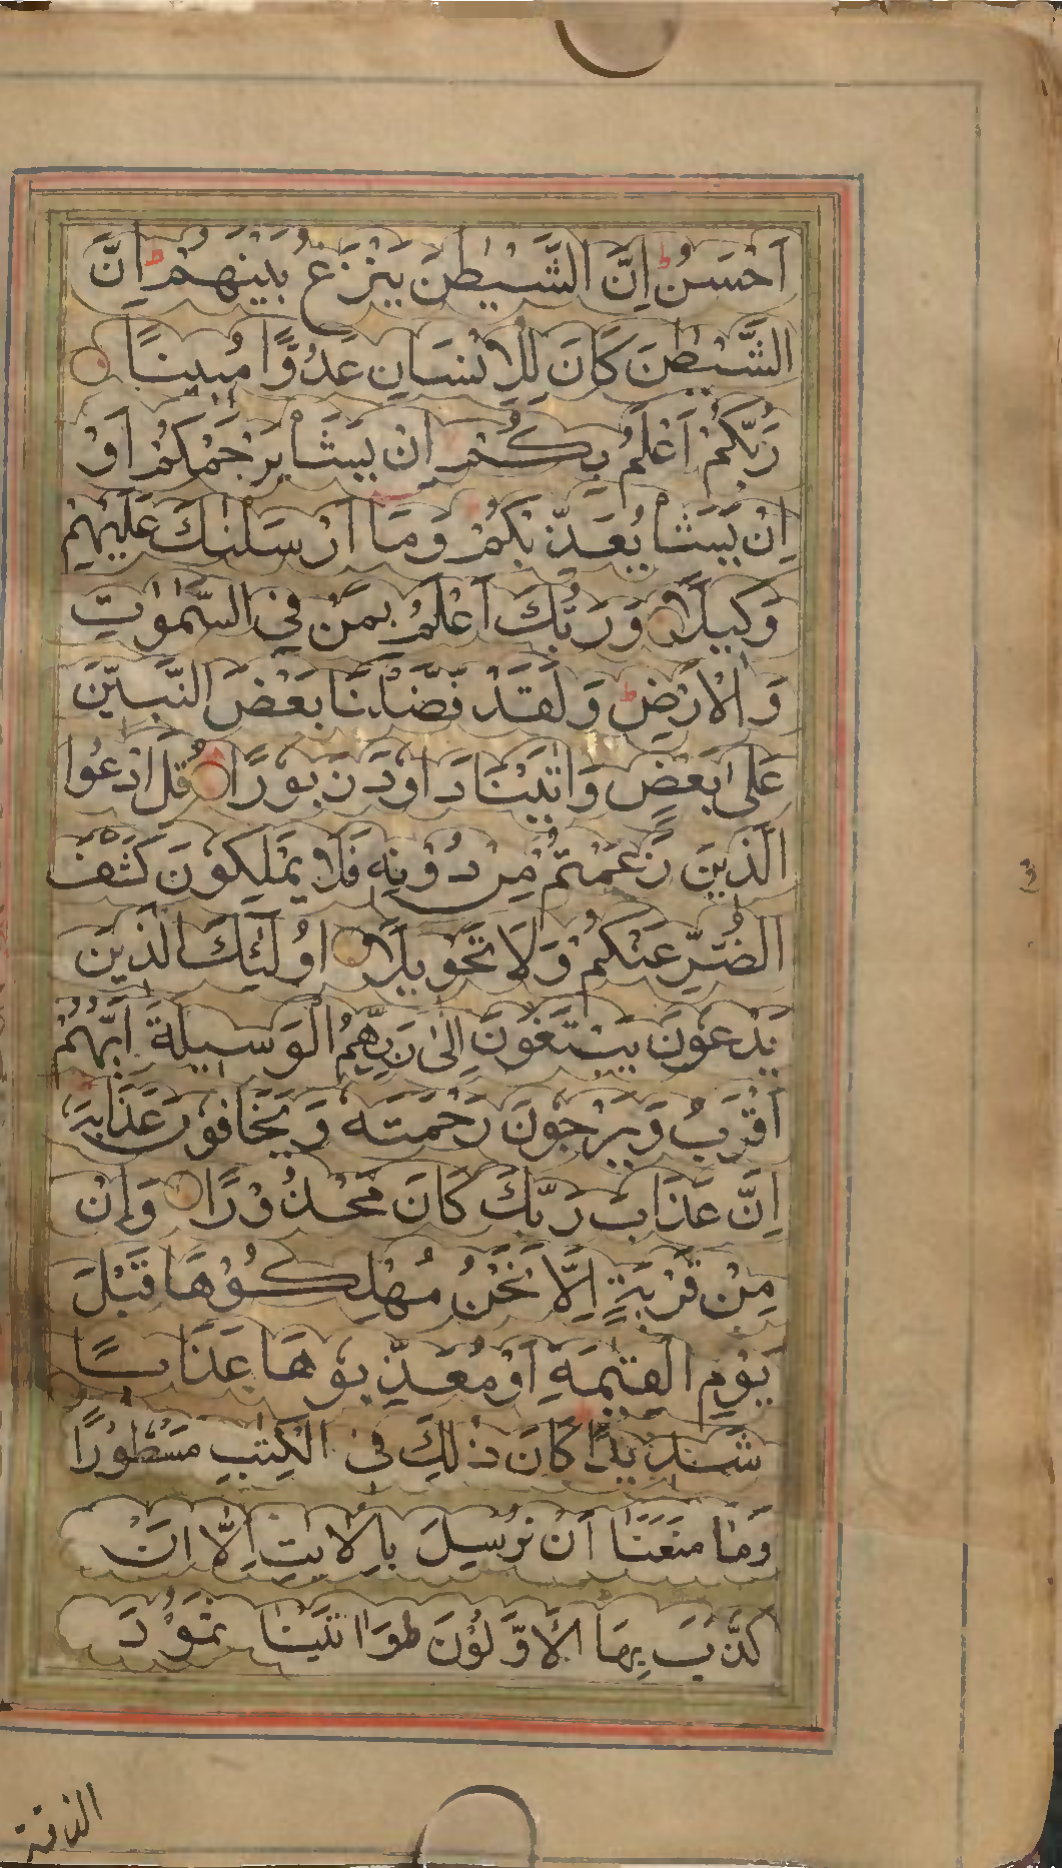 اَحْسَنُ ط اِنَّ الشَّيْطٰنَ يَنْزَغُ بَيْنَهُمْ ط اِنَّ
الشَّيْطٰنَ كَانَ لِلْاِنْسَانِ عَدُوًّا مُبِينًا
رَبُّكُمْ اَعْلَمُ بِكُمْ اِنْ يَشَاْ يَرْحَمْكُمْ اَوْ
اِنْ يَشَاْ يُعَذِّبْكُمْ وَمَا اَرْسَلْنٰكَ عَلَيْهِمْ
وَكِيلًا وَرَبُّكَ اَعْلَمُ بِمَنْ فِي السَّمٰوٰتِ
وَالْاَرْضِ ط وَلَقَدْ فَضَّلْنَا بَعْضَ النَّبِيّنَ
عَلٰى بَعْضٍ وَاٰتَيْنَا دَاوٗدَ زَبُورًا قُلِ ادْعُوا
الَّذِينَ زَعَمْتُمْ مِنْ دُوْنِهٖ فَلَا يَمْلِكُونَ كَشْفَ
الضُّرِّ عَنْكُمْ وَلَا تَحْوِيلًا اُولٰئِكَ الَّذِينَ
يَدْعُونَ يَبْتَغُونَ اِلٰى رَبِّهِمُ الْوَسِيلَةَ اَيُّهُمْ
اَقْرَبُ وَيَرْجُونَ رَحْمَتَهٗ وَيَخَافُونَ عَذَابَهٗ
اِنَّ عَذَابَ رَبِّكَ كَانَ مَحْذُوْرًا وَاِنْ
مِنْ قَرْيَةٍ اِلَّا نَحْنُ مُهْلِكُوْهَا قَبْلَ
يَوْمِ الْقِيٰمَةِ اَوْ مُعَذِّبُوْهَا عَذَابًا
شَدِيْدًا كَانَ ذٰلِكَ فِى الْكِتٰبِ مَسْطُوْرًا
وَمَا مَنَعَنَا اَنْ نُرْسِلَ بِالْاٰيٰتِ اِلَّا اَنْ
كَذَّبَ بِهَا الْاَوَّلُوْنَ ط وَاٰتَيْنَا ثَمُوْدَ
الناقة